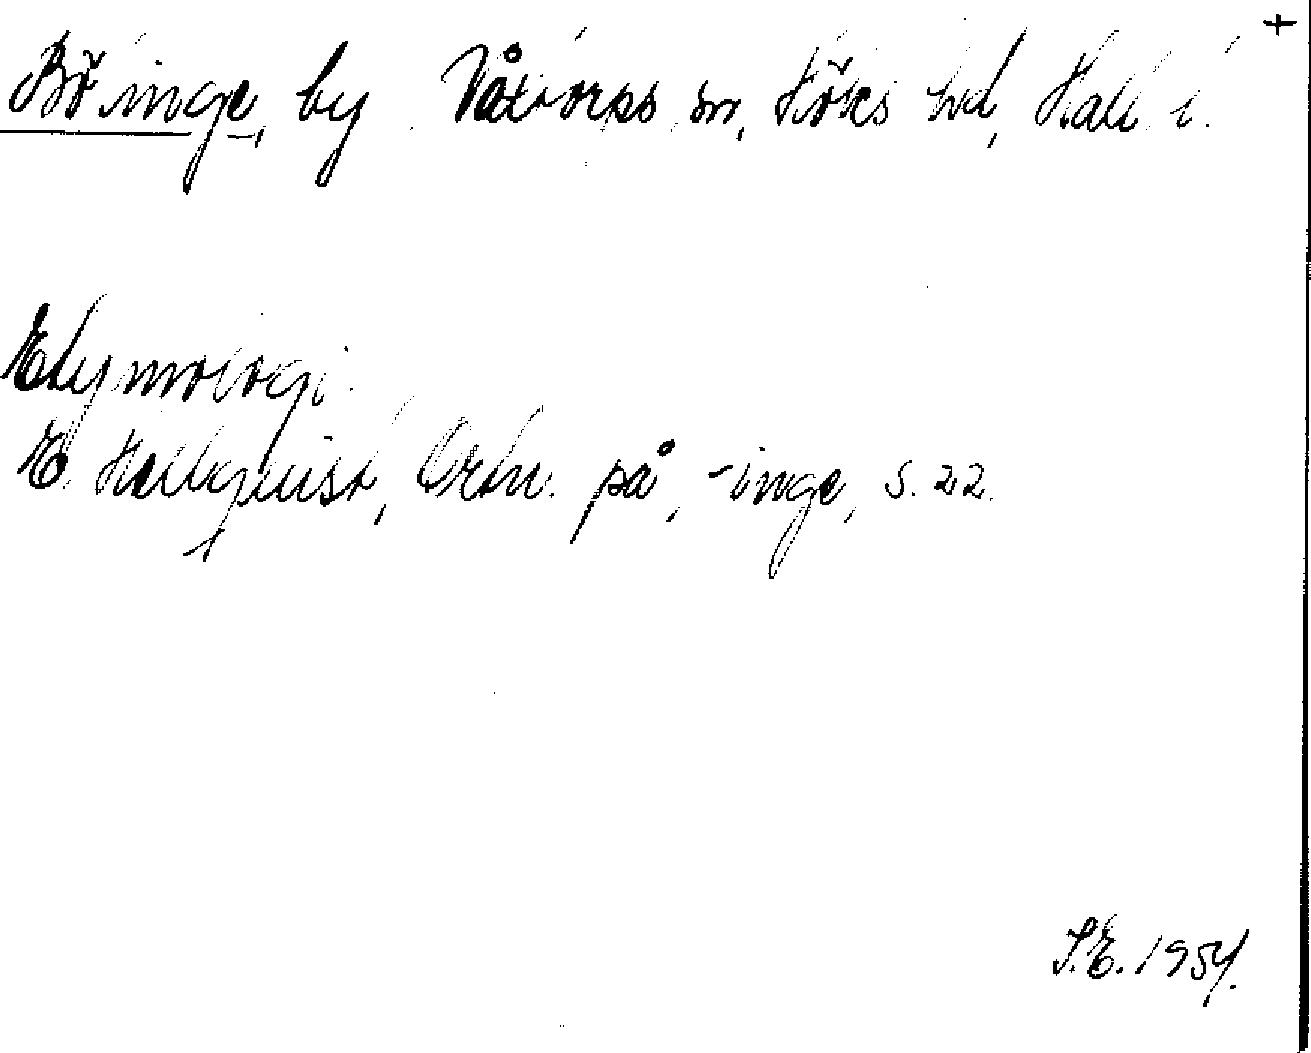 +
Böinge, by Våxtorps sn, Höks hd, Hall. l.
Etymologi.
E. Hellquist, Ortn. på -inge, s. 22.
S.E. 1954.